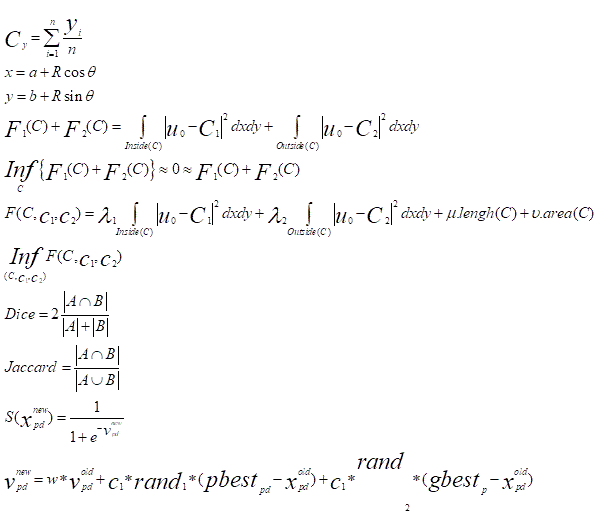 C_y = \sum_{i=1}^{n} \frac{y_i}{n}
x = a + R cos θ
y = b + R sin θ
F_1(C) + F_2(C) = \int_{Inside(C)} |u_0 - C_1|^2 dxdy + \int_{Outside(C)} |u_0 - C_2|^2 dxdy
Inf_{C} {F_1(C) + F_2(C)} ≈ 0 ≈ F_1(C) + F_2(C)
F(C, C_1, C_2) = λ_1 \int_{Inside(C)} |u_0 - C_1|^2 dxdy + λ_2 \int_{Outside(C)} |u_0 - C_2|^2 dxdy + μ.lengh(C) + υ.area(C)
Inf_{(C, C_1, C_2)} F(C, C_1, C_2)
Dice = 2 \frac{|A ∩ B|}{|A| + |B|}
Jaccard = \frac{|A ∩ B|}{|A ∪ B|}
S(x_{pd}^{new}) = \frac{1}{1 + e^{-v_{pd}^{new}}}
v_{pd}^{new} = w * v_{pd}^{old} + c_1 * rand_1 * (pbest_{pd} - x_{pd}^{old}) + c_1 * rand_2 * (gbest_p - x_{pd}^{old})